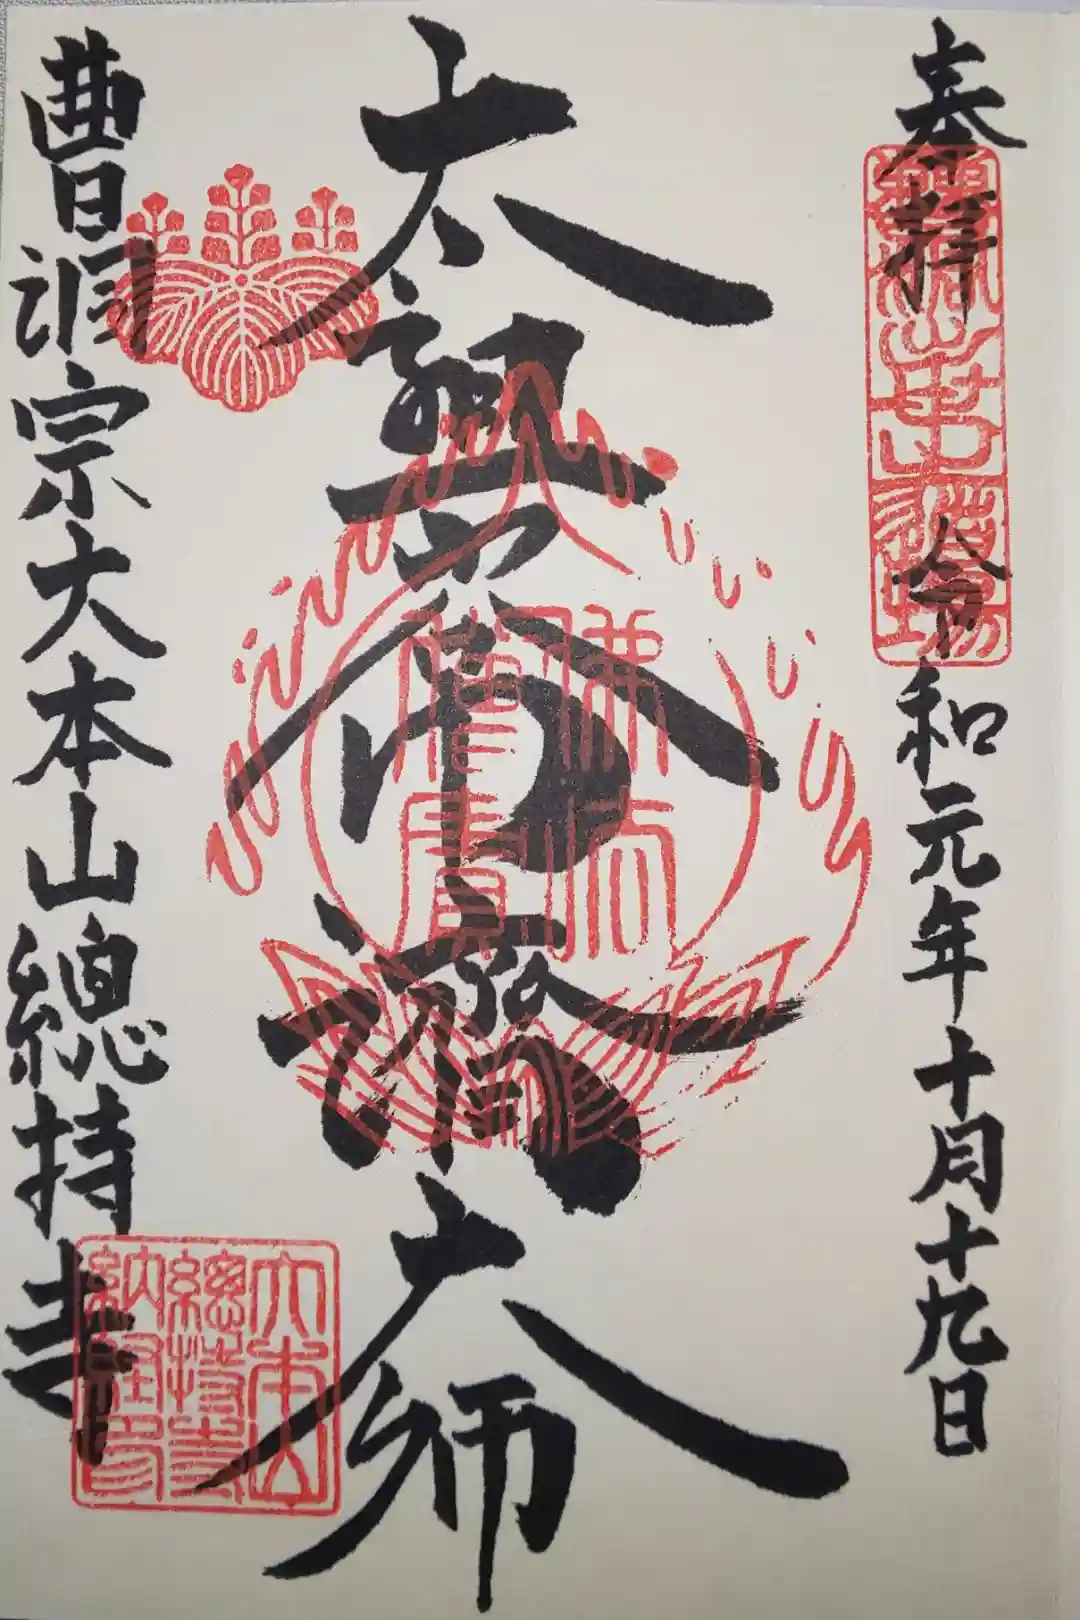 奉拝 令和元年十月十九日
太祖常濟大師
曹洞宗大本山總持寺
佛法
僧寳
大本山
總持寺
納経印